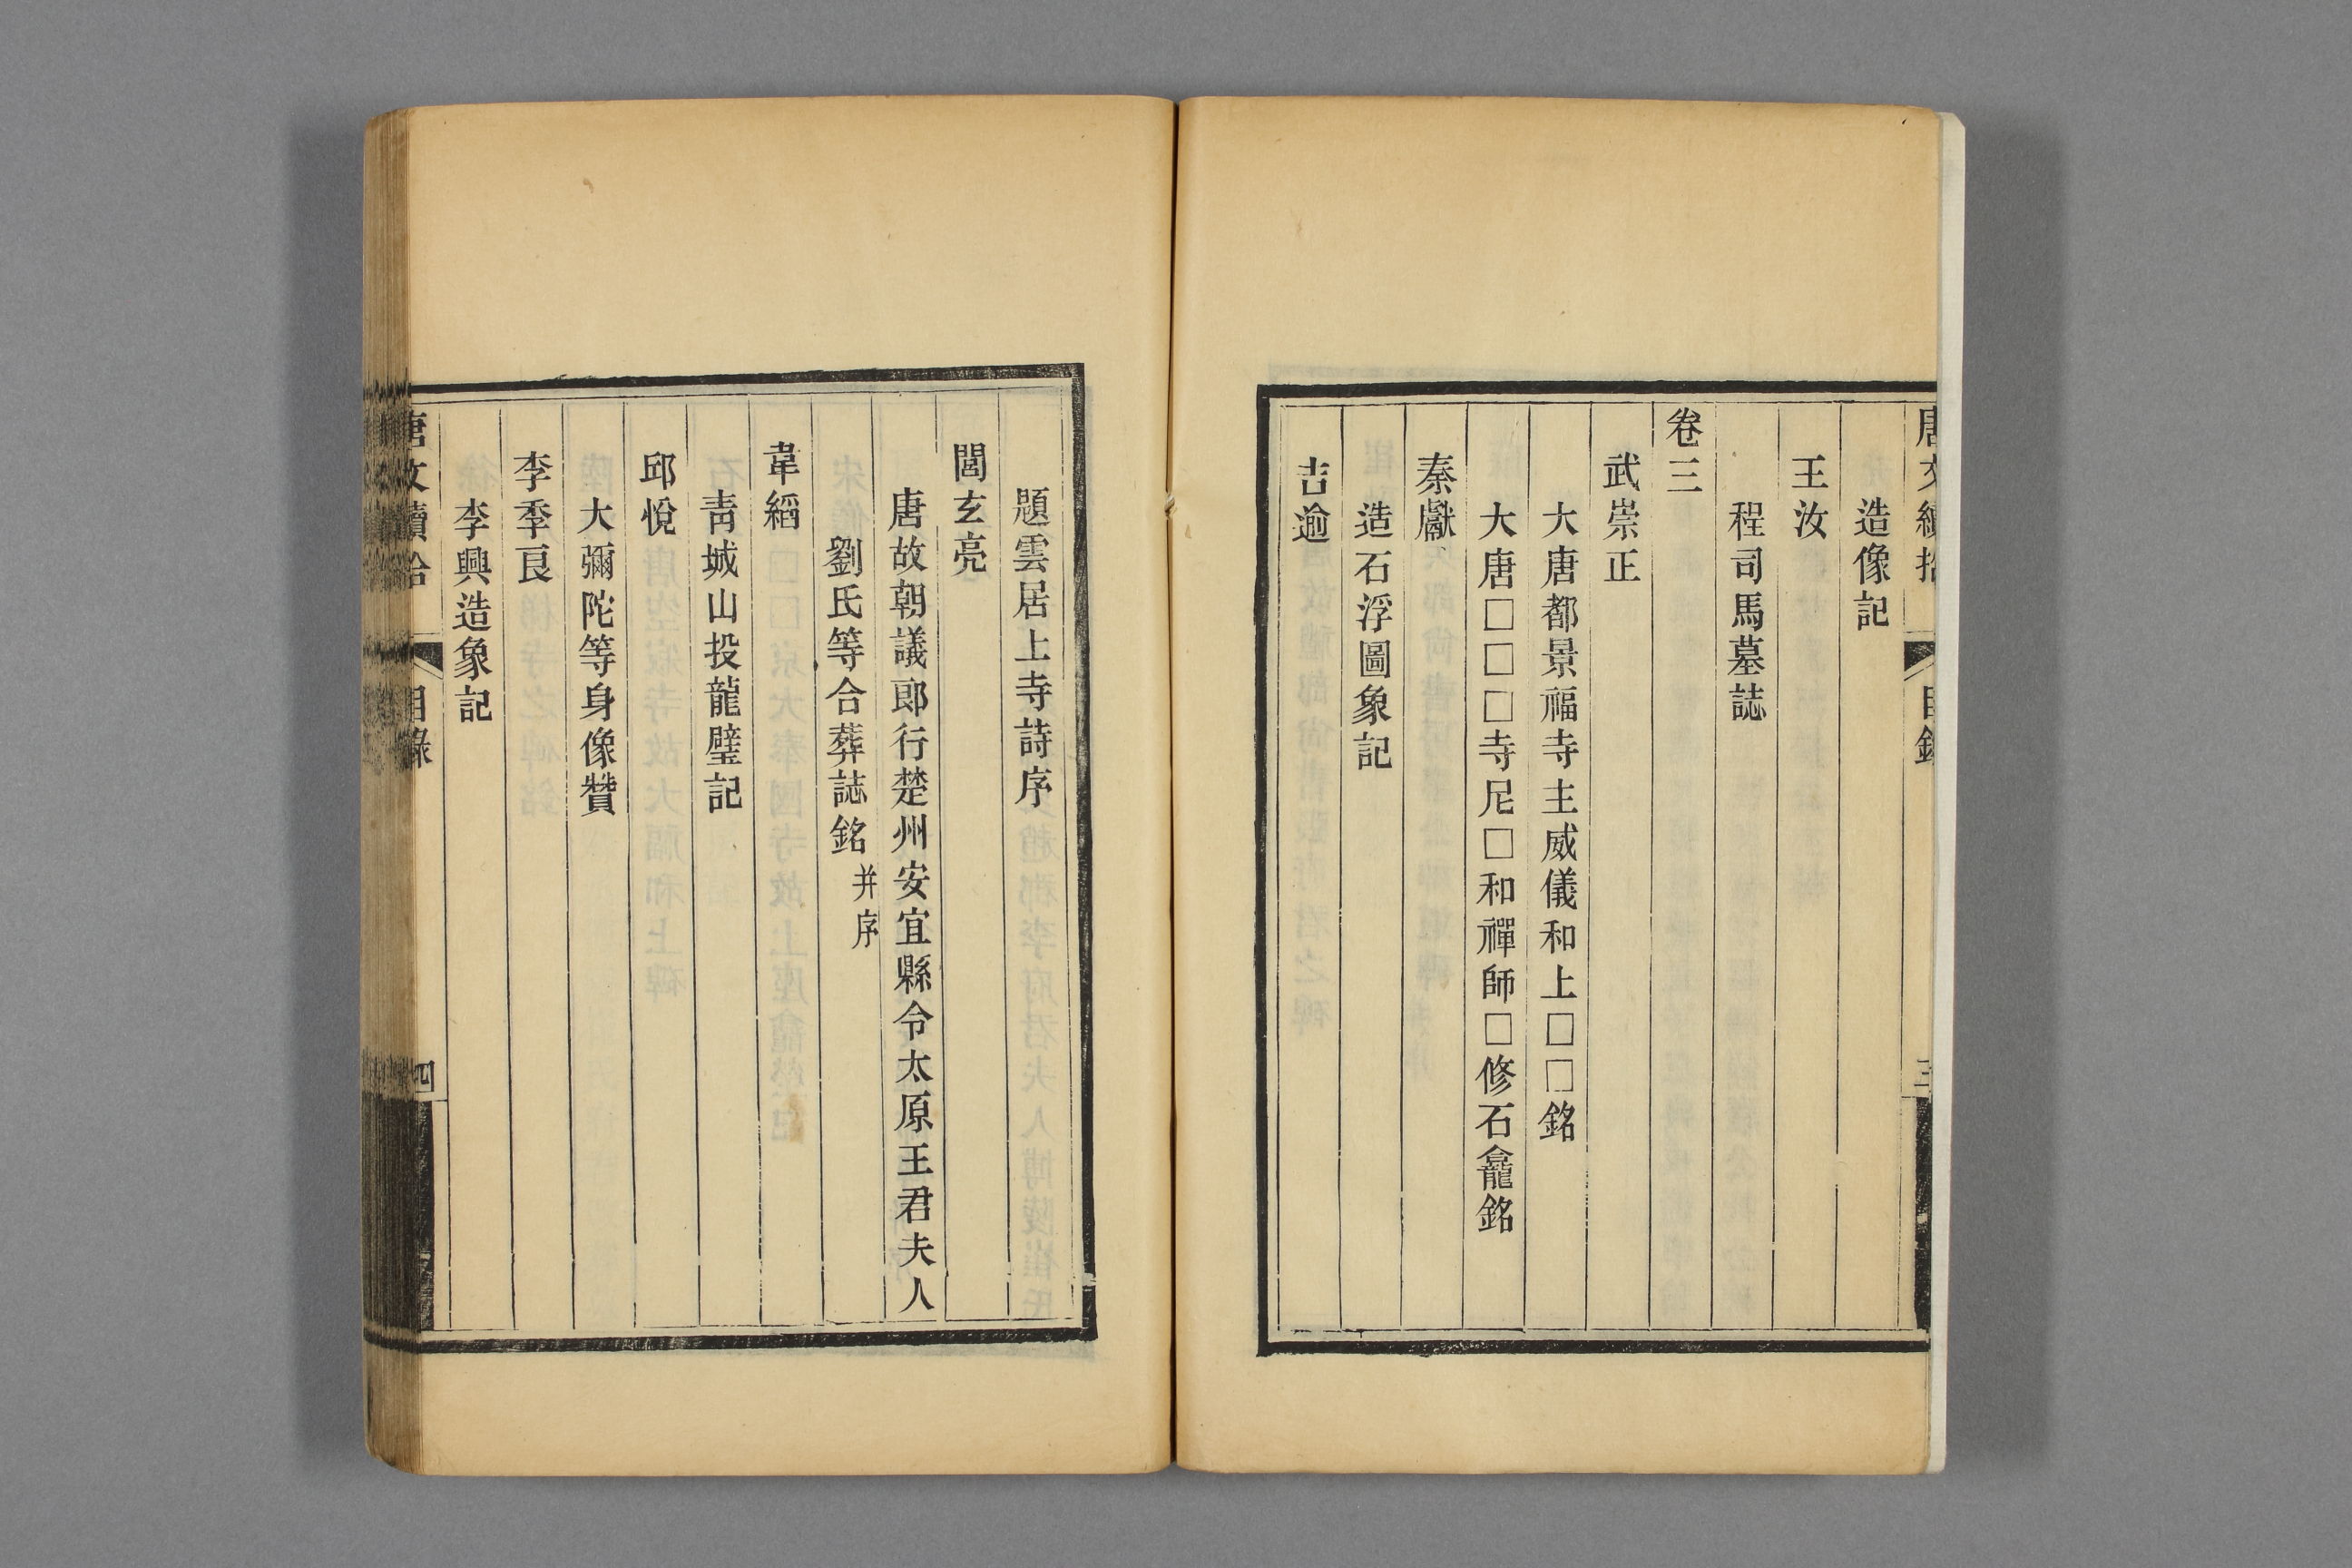 唐文續拾
目錄
三
造像記
王汝
程司馬墓誌
卷三
武崇正
大唐都景福寺主威儀和上□□銘
大唐□□□寺尼□和禪師□修石龕銘
秦獻
造石浮圖象記
吉逾
題雲居上寺詩序
閻玄亮
唐故朝議郎行楚州安宜縣令太原王君夫人
劉氏等合葬誌銘并序
韋縚
青城山投龍璧記
邱悅
大彌陀等身像贊
李季良
李興造象記
唐文續拾
目錄
四